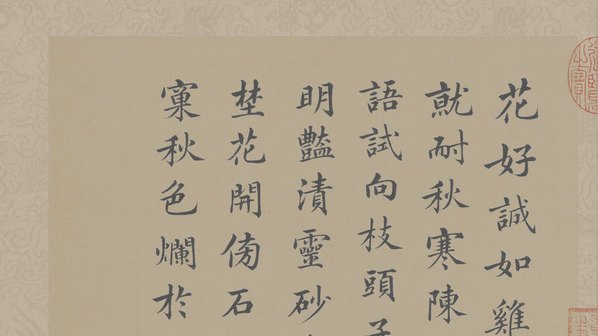 花好誠如雞
就耐秋寒陳
語試向枝頭
眀豔漬靈砂
埜花開傍石
窠秋色爛於